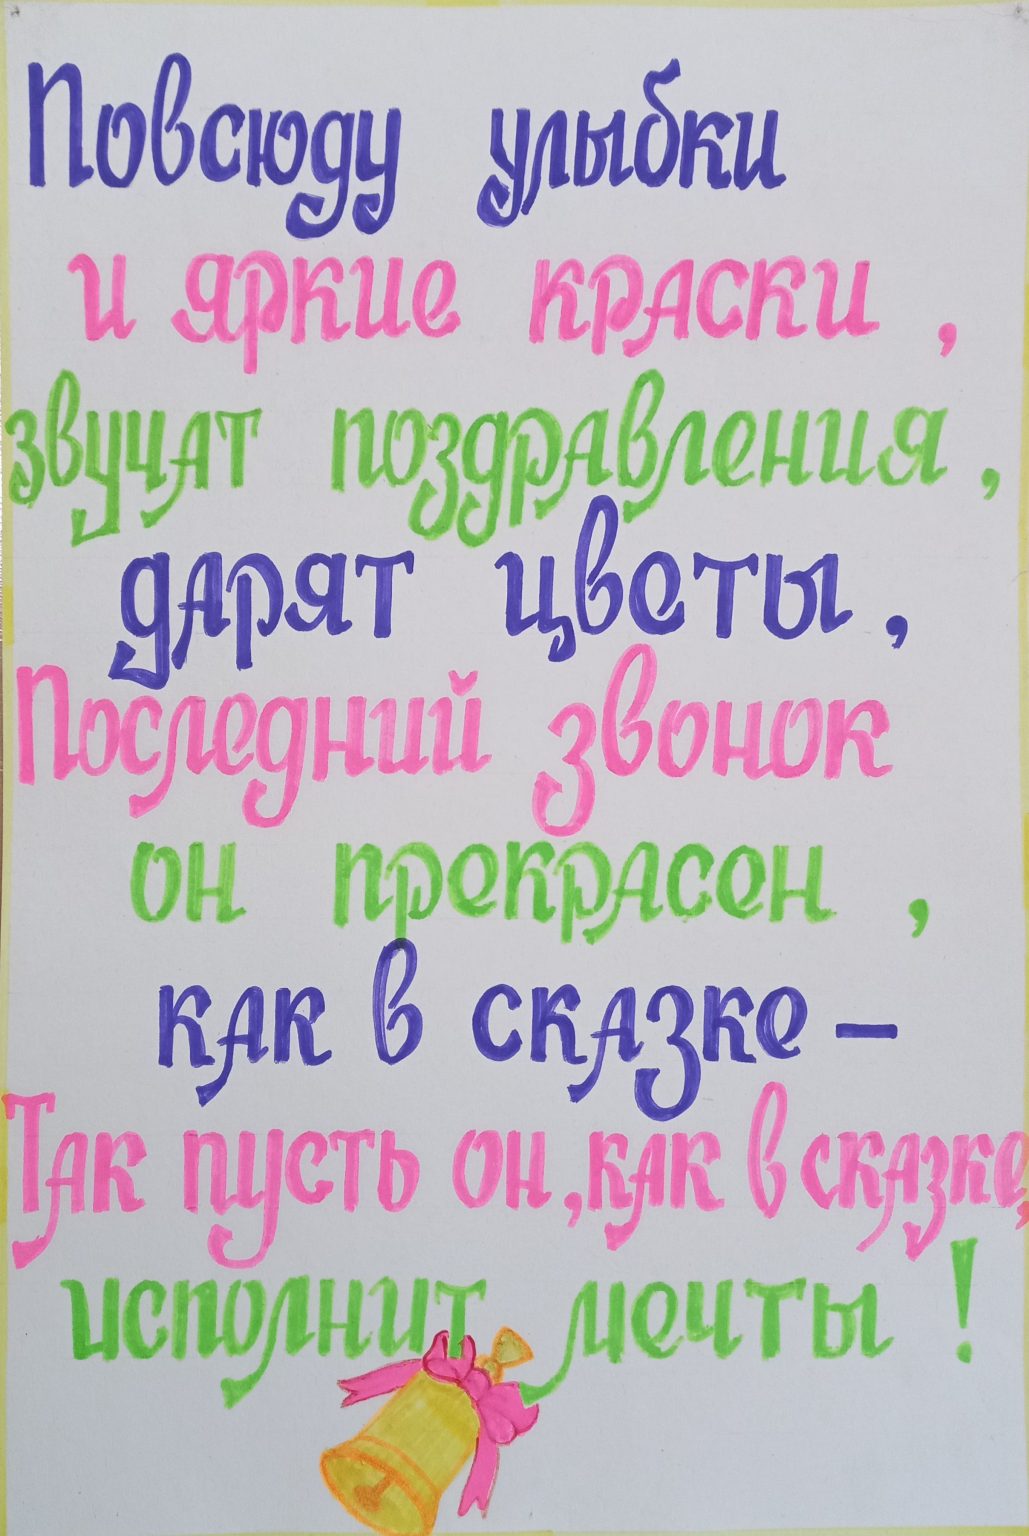 Повсюду улыбки
и яркие краски ,
звучат поздравления ,
дарят цветы ,
Последний звонок
он прекрасен ,
как в сказке –
Так пусть он, как в сказке,
исполнит мечты !